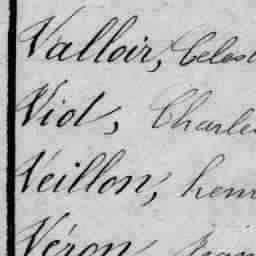 Valloir, Celest
Viol, Charles
Veillon, henri
Véron, Jean